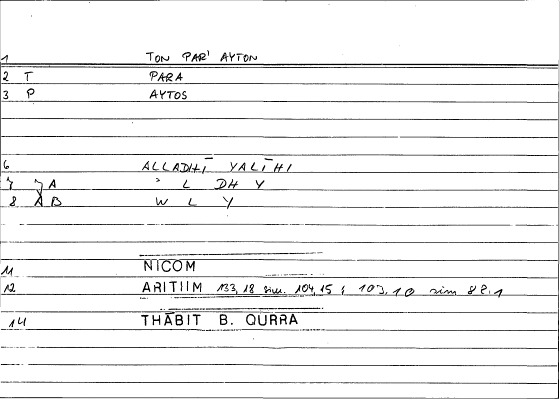 1 TON PAR' AYTON
2 T PARA
3 P AYTOS
6 ALLADHĪ YALĪHI
7 A ' L DH Y
8 A B W L Y
11 NICOM
12 ARITIIM 133,18 sim. 104,15 ; 103,10 sim 88,1
14 THĀBIT B. QURRA